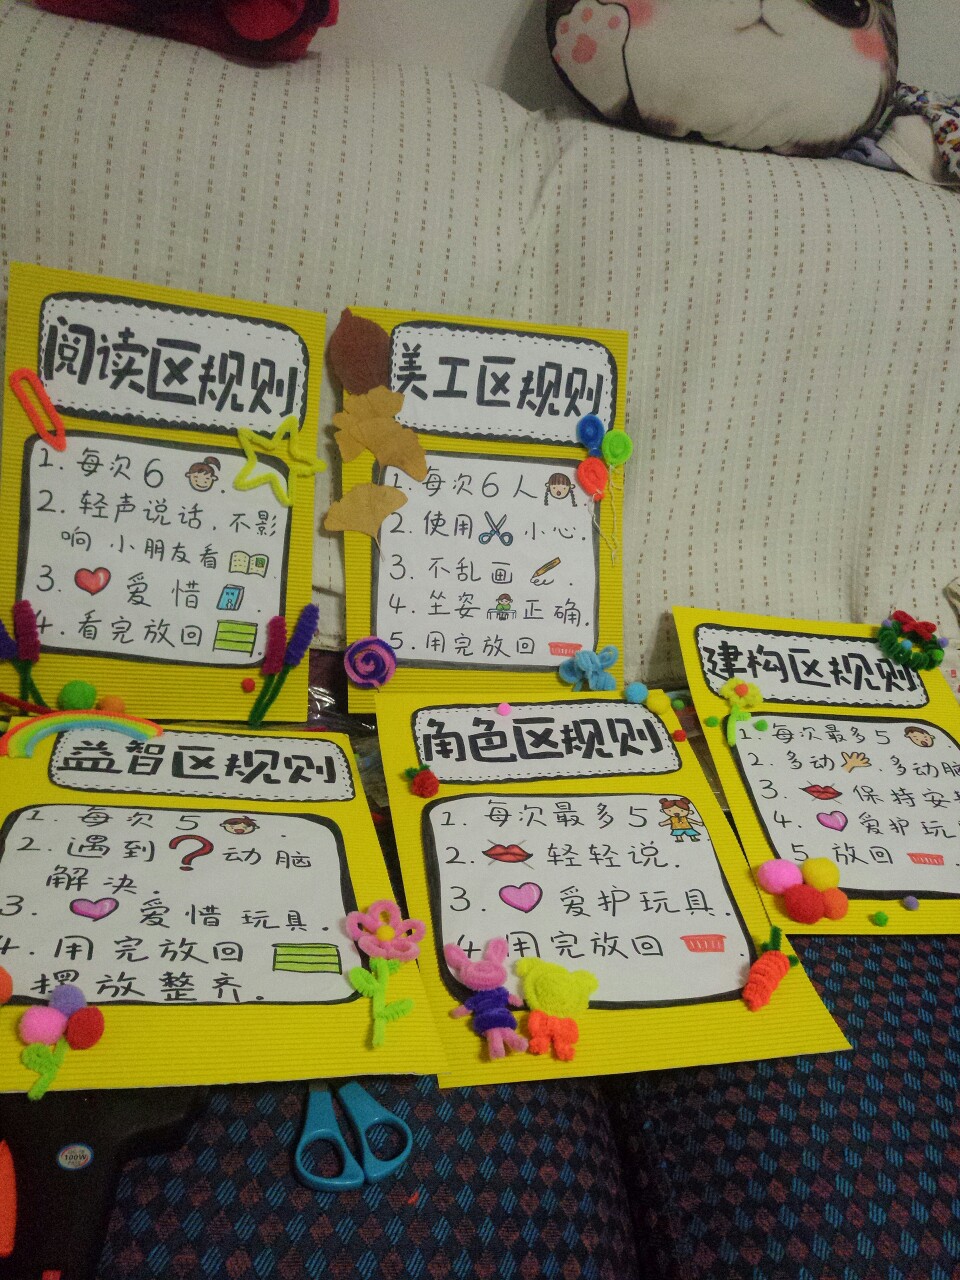 阅读区规则
1. 每次6
2. 轻声说话,不影
响 小朋友看
3. 爱惜
4. 看完放回
美工区规则
1. 每次6人
2. 使用 小心.
3. 不乱画
4. 坐姿 正确.
5. 用完放回
建构区规则
1. 每次最多5
2. 多动 . 多动脑
3. 保持安
4. 爱护玩
5. 放回
益智区规则
1. 每次5 .
2. 遇到 动脑
解决.
3. 爱惜玩具.
4. 用完放回
摆放整齐.
角色区规则
1. 每次最多5
2. 轻轻说.
3. 爱护玩具.
4. 用完放回
100W